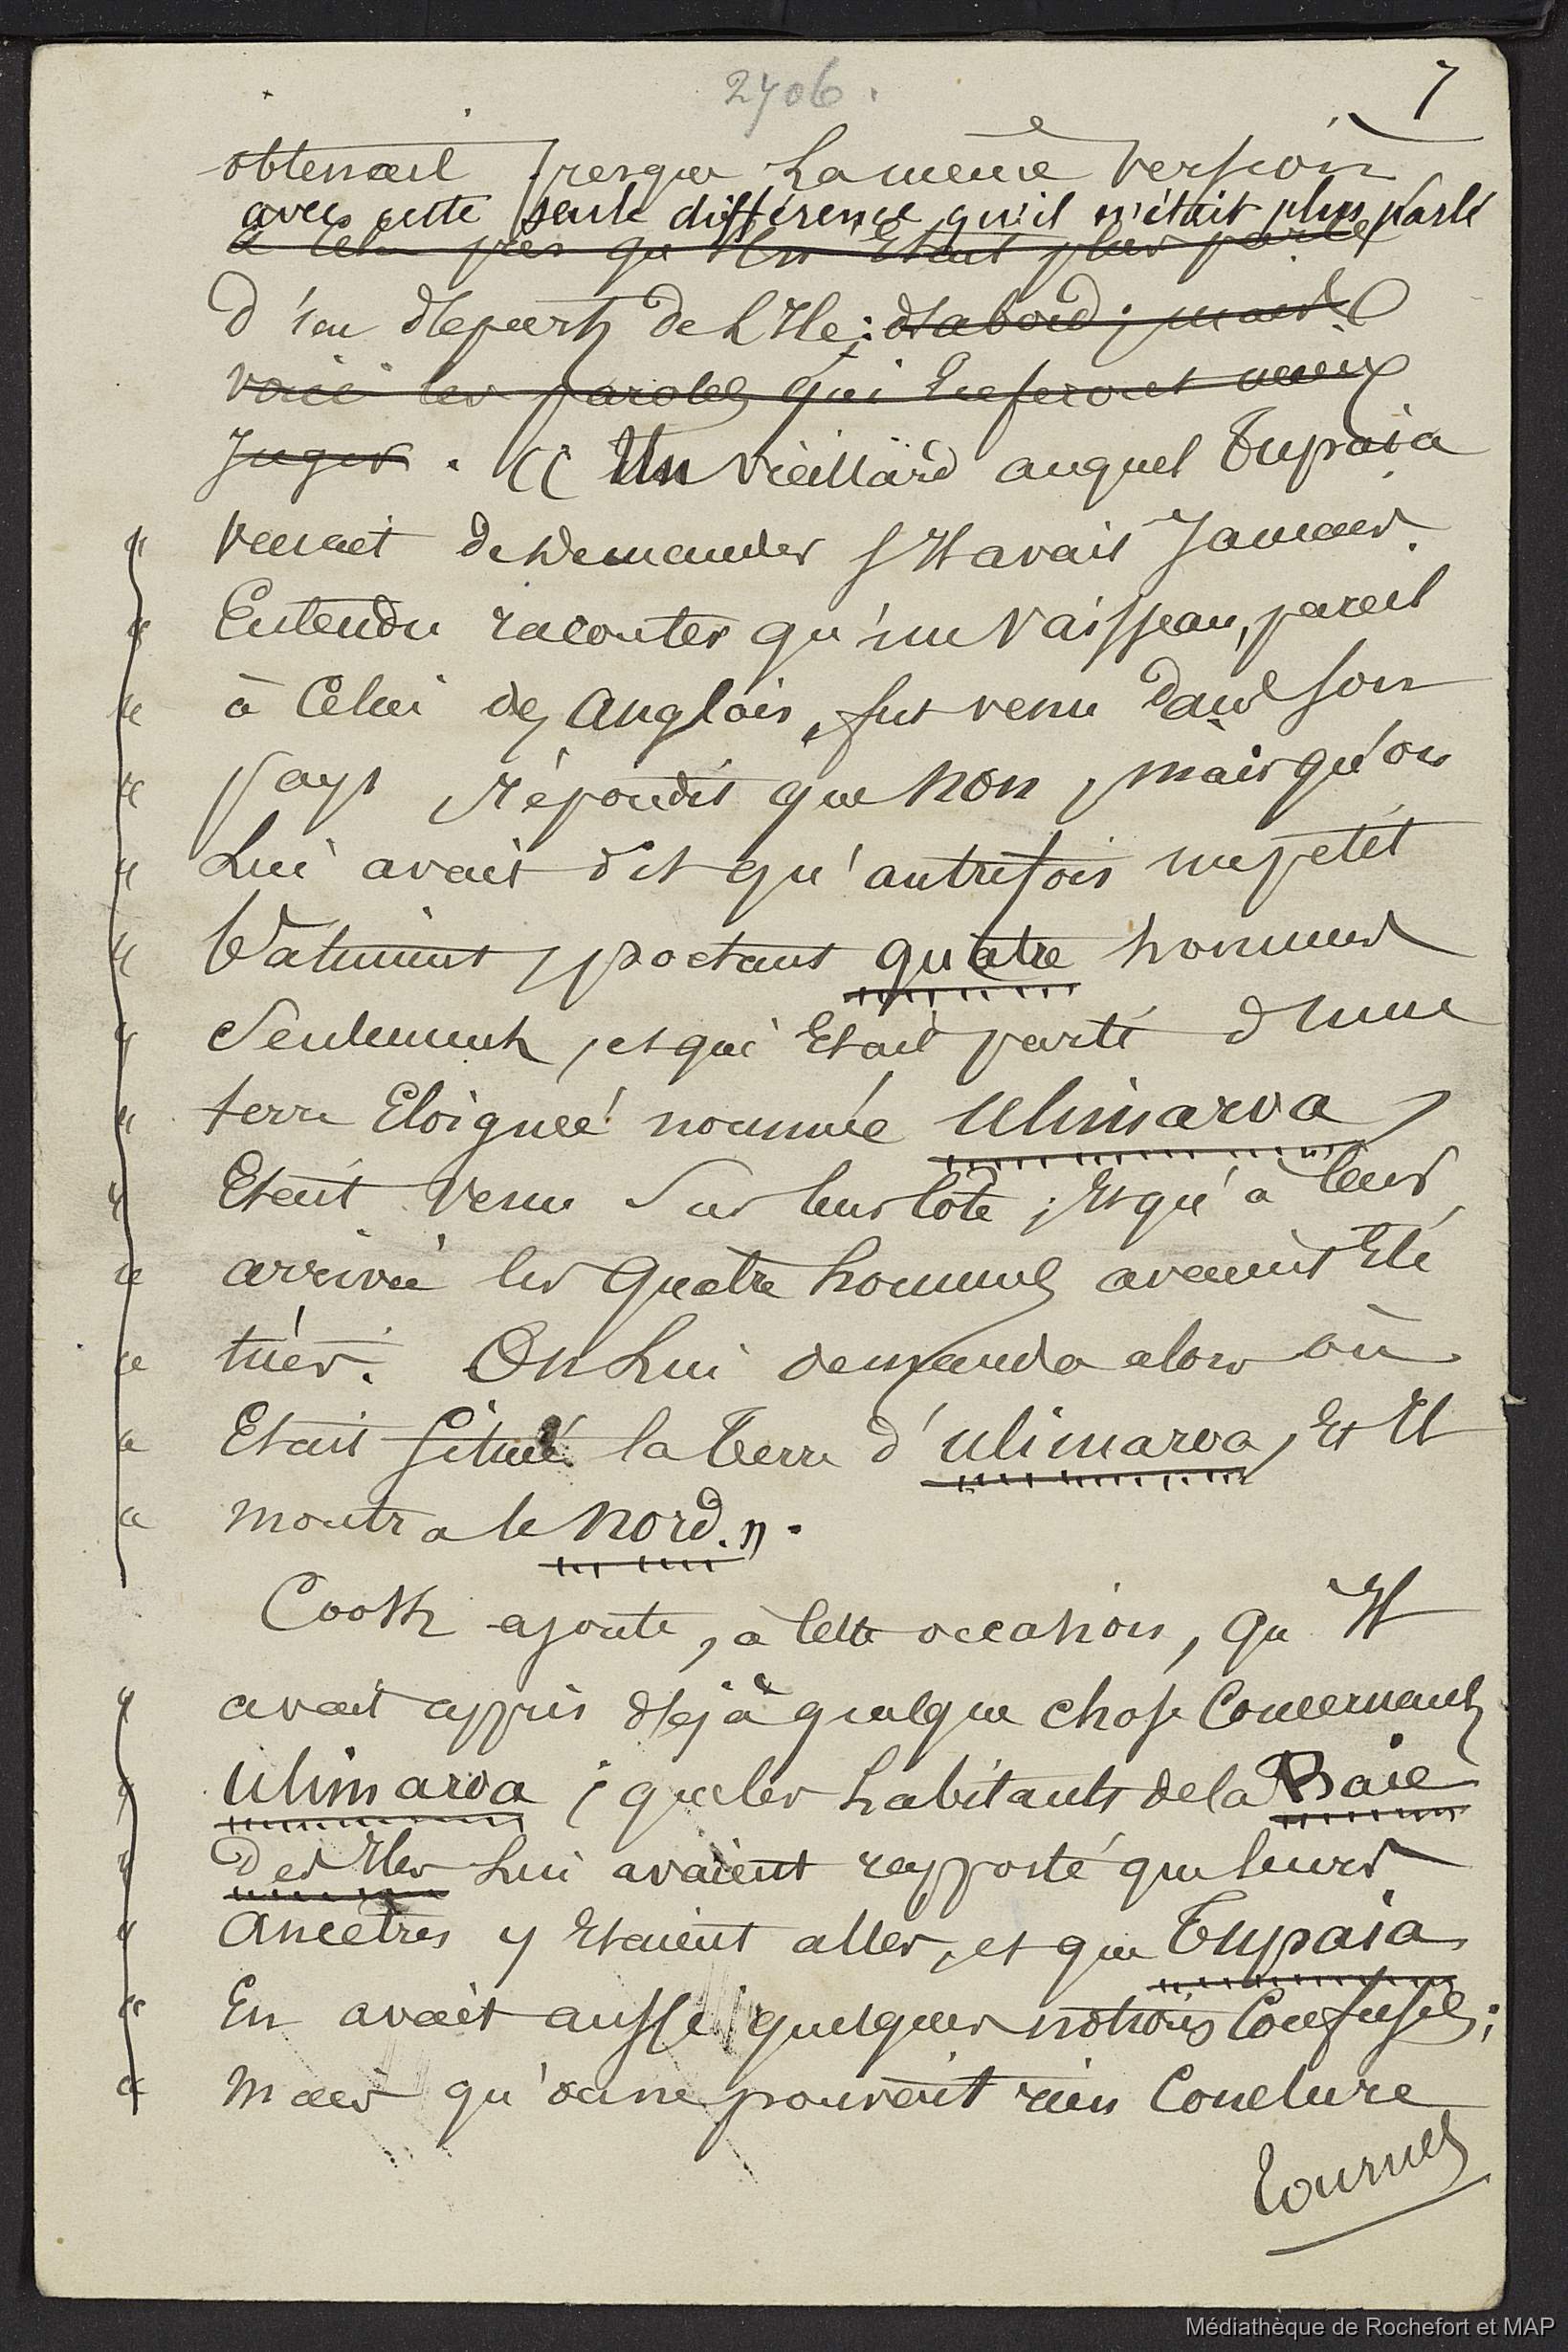 2706.
7
obtenait presque la même version
avec cette seule différence qu'il n'était plus parlé
à cela près qu'il n'était plus parlé
d'un départ de l'Ile; d'abord; mais
voici les paroles qui en feront mieux
Juger. « Un vieillard auquel Tupaia
venait de demander s'Il avait Jamais
Entendu raconter qu'un vaisseau, pareil
à Celui des Anglais, fut venu dans son
pays répondit que non, mais qu'on
Lui avait dit qu'autrefois un petit
bâtiment, portant quatre hommes
Seulement, et qui Etait parti d'une
terre Eloigneé nommée Ulimaroa,
Etait venu Sur leur côte; Et qu'à leur
arrivée les quatre hommes avaient Eté
tués. On Lui demanda alors où
Etait située la terre d'Ulimaroa, Et Il
montra le nord. ».
Cook ajoute, à cette occasion, qu'Il
avait appris déjà quelque chose Concernant
Ulimaroa; que les habitants de la Baie
des Iles Lui avaient rapporté que leurs
Ancêtres y Etaient allés, et que Tupaia
En avait aussi quelques notions Confuses;
mais qu'on ne pouvait rien Conclure
Tournez
Médiathèque de Rochefort et MAP